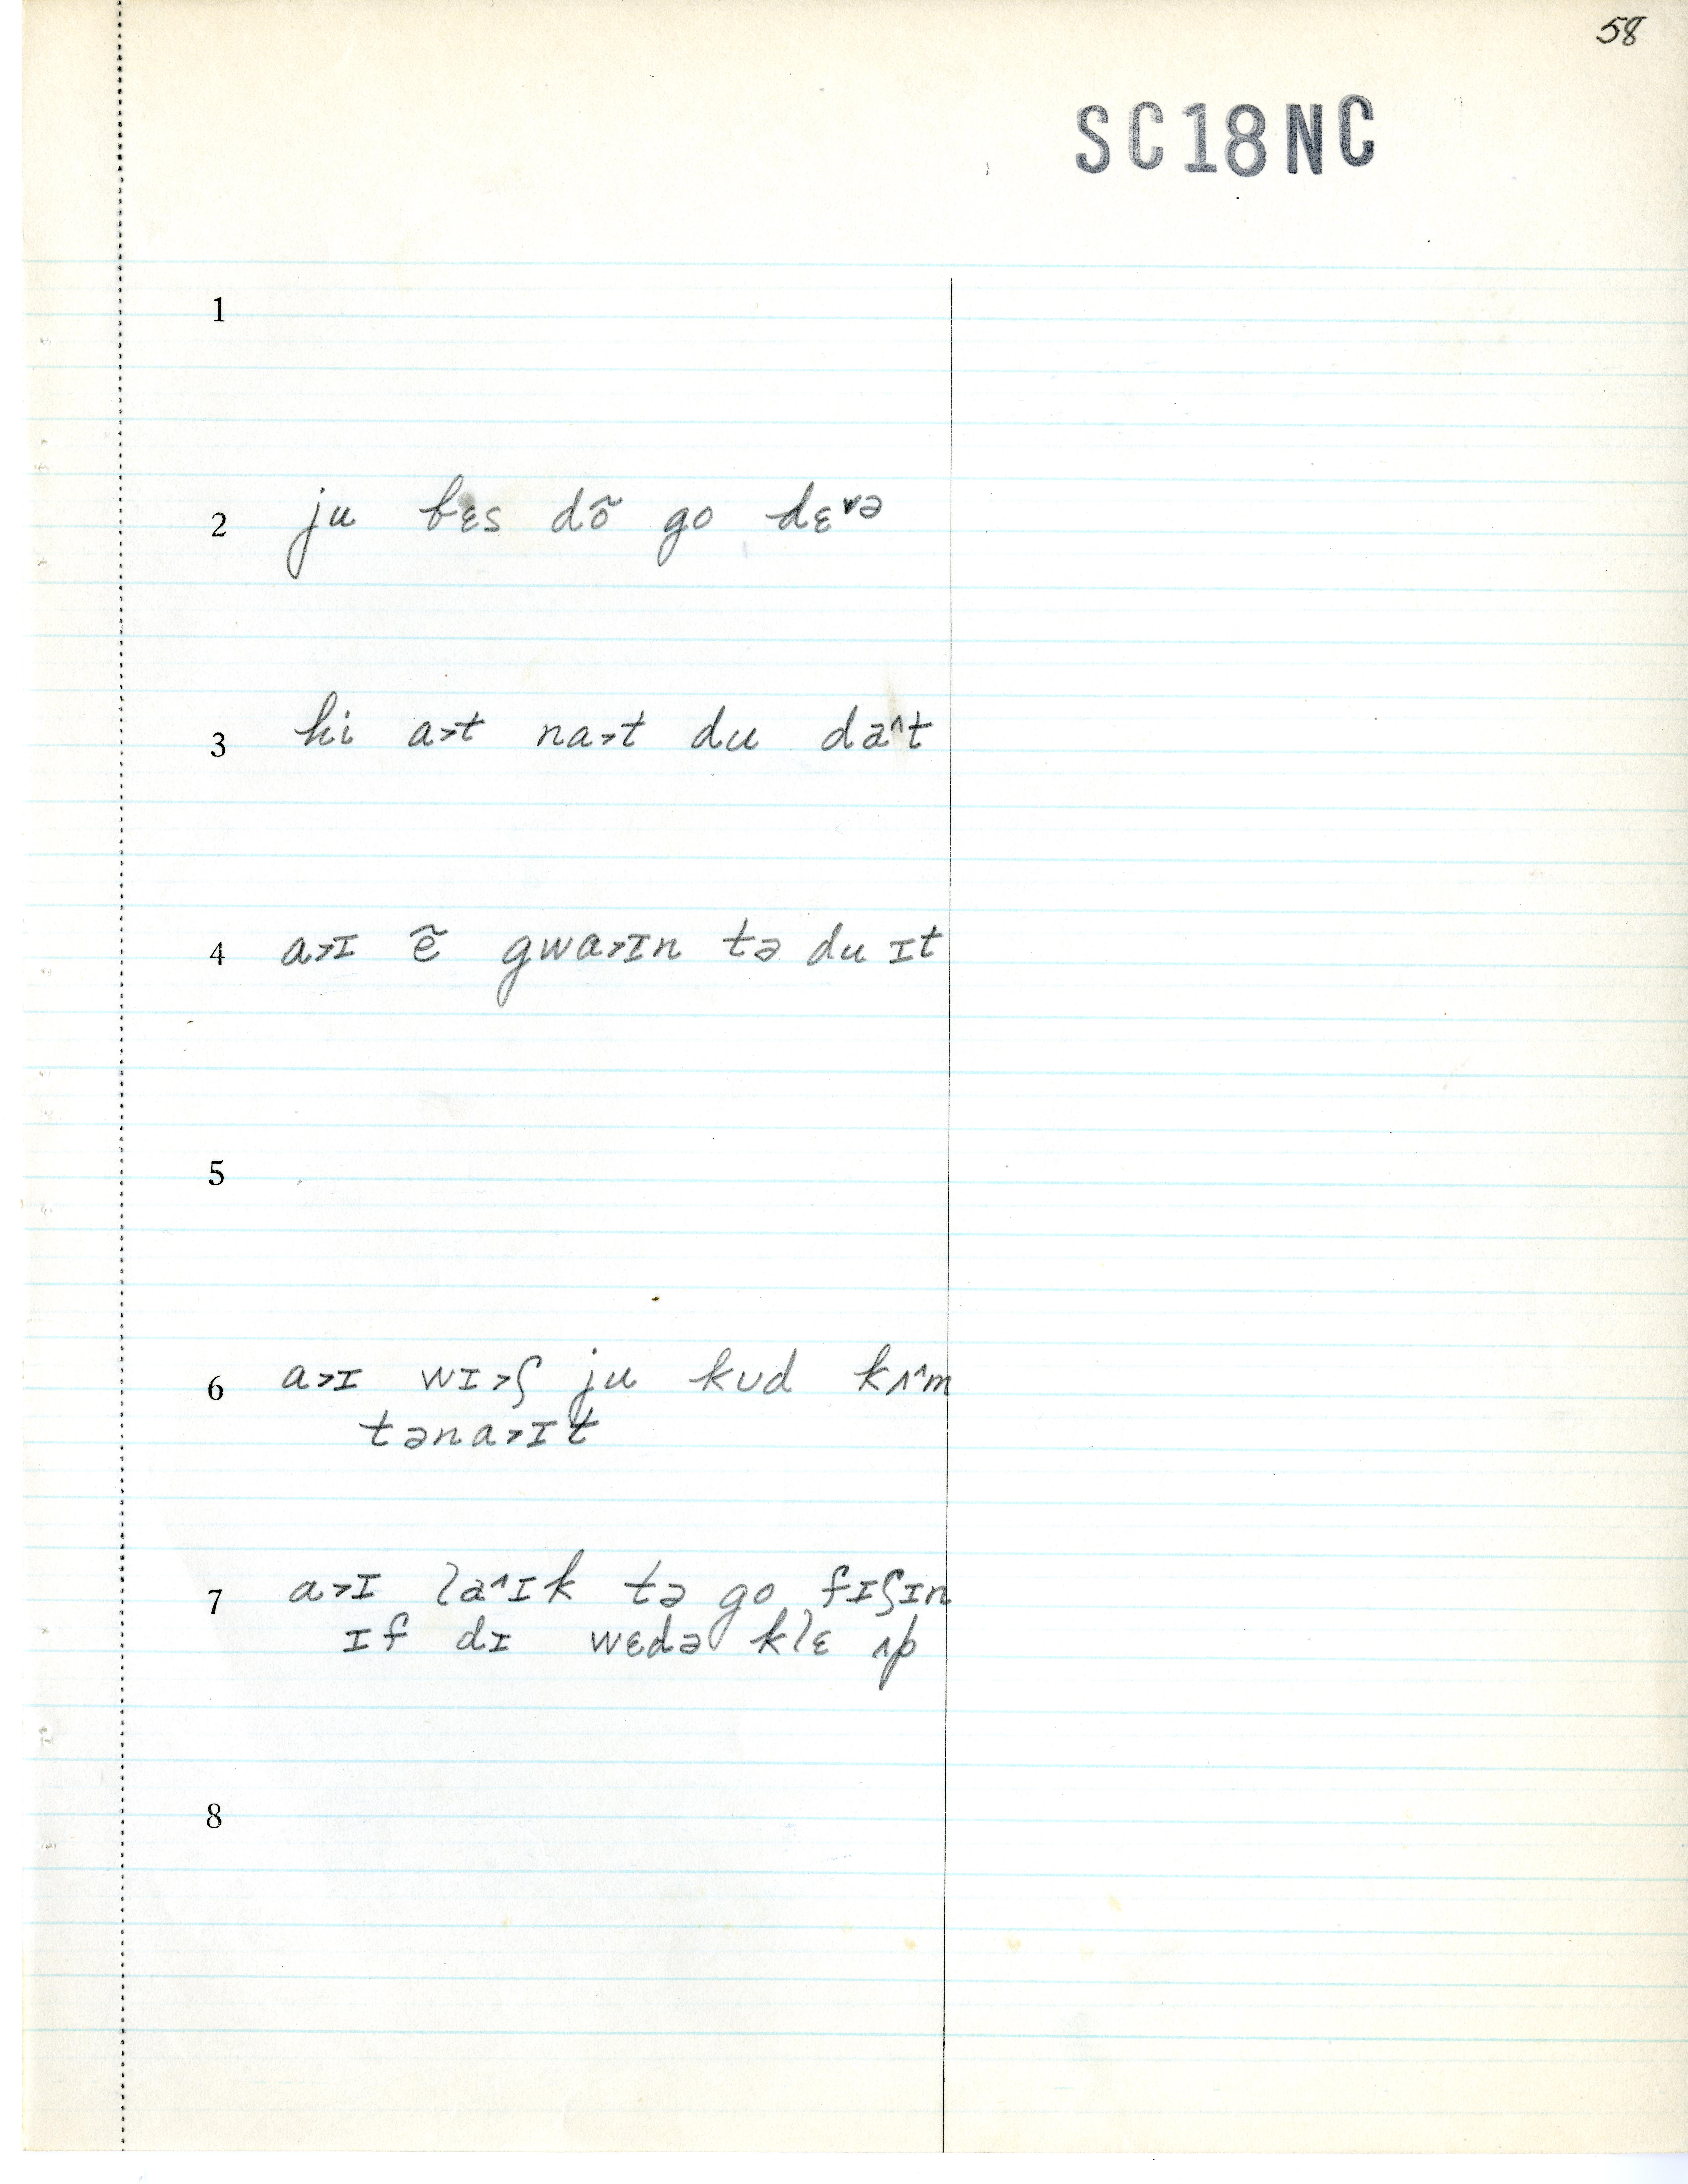 58
SC18NC
1
2 ju bɛs dõ go dɛ˅ə
3 hi a˃t na˃t du da˄t
4 a˃ɪ ẽ gwa˃ɪn tə du ɪt
5
6 a˃ɪ wɪ˃ʃ ju kud kʌ˄m
təna˃ɪt
7 a˃ɪ la˄ɪk tə go fɪʃɪn
ɪf dɪ wɛdə klɛ ʌp
8